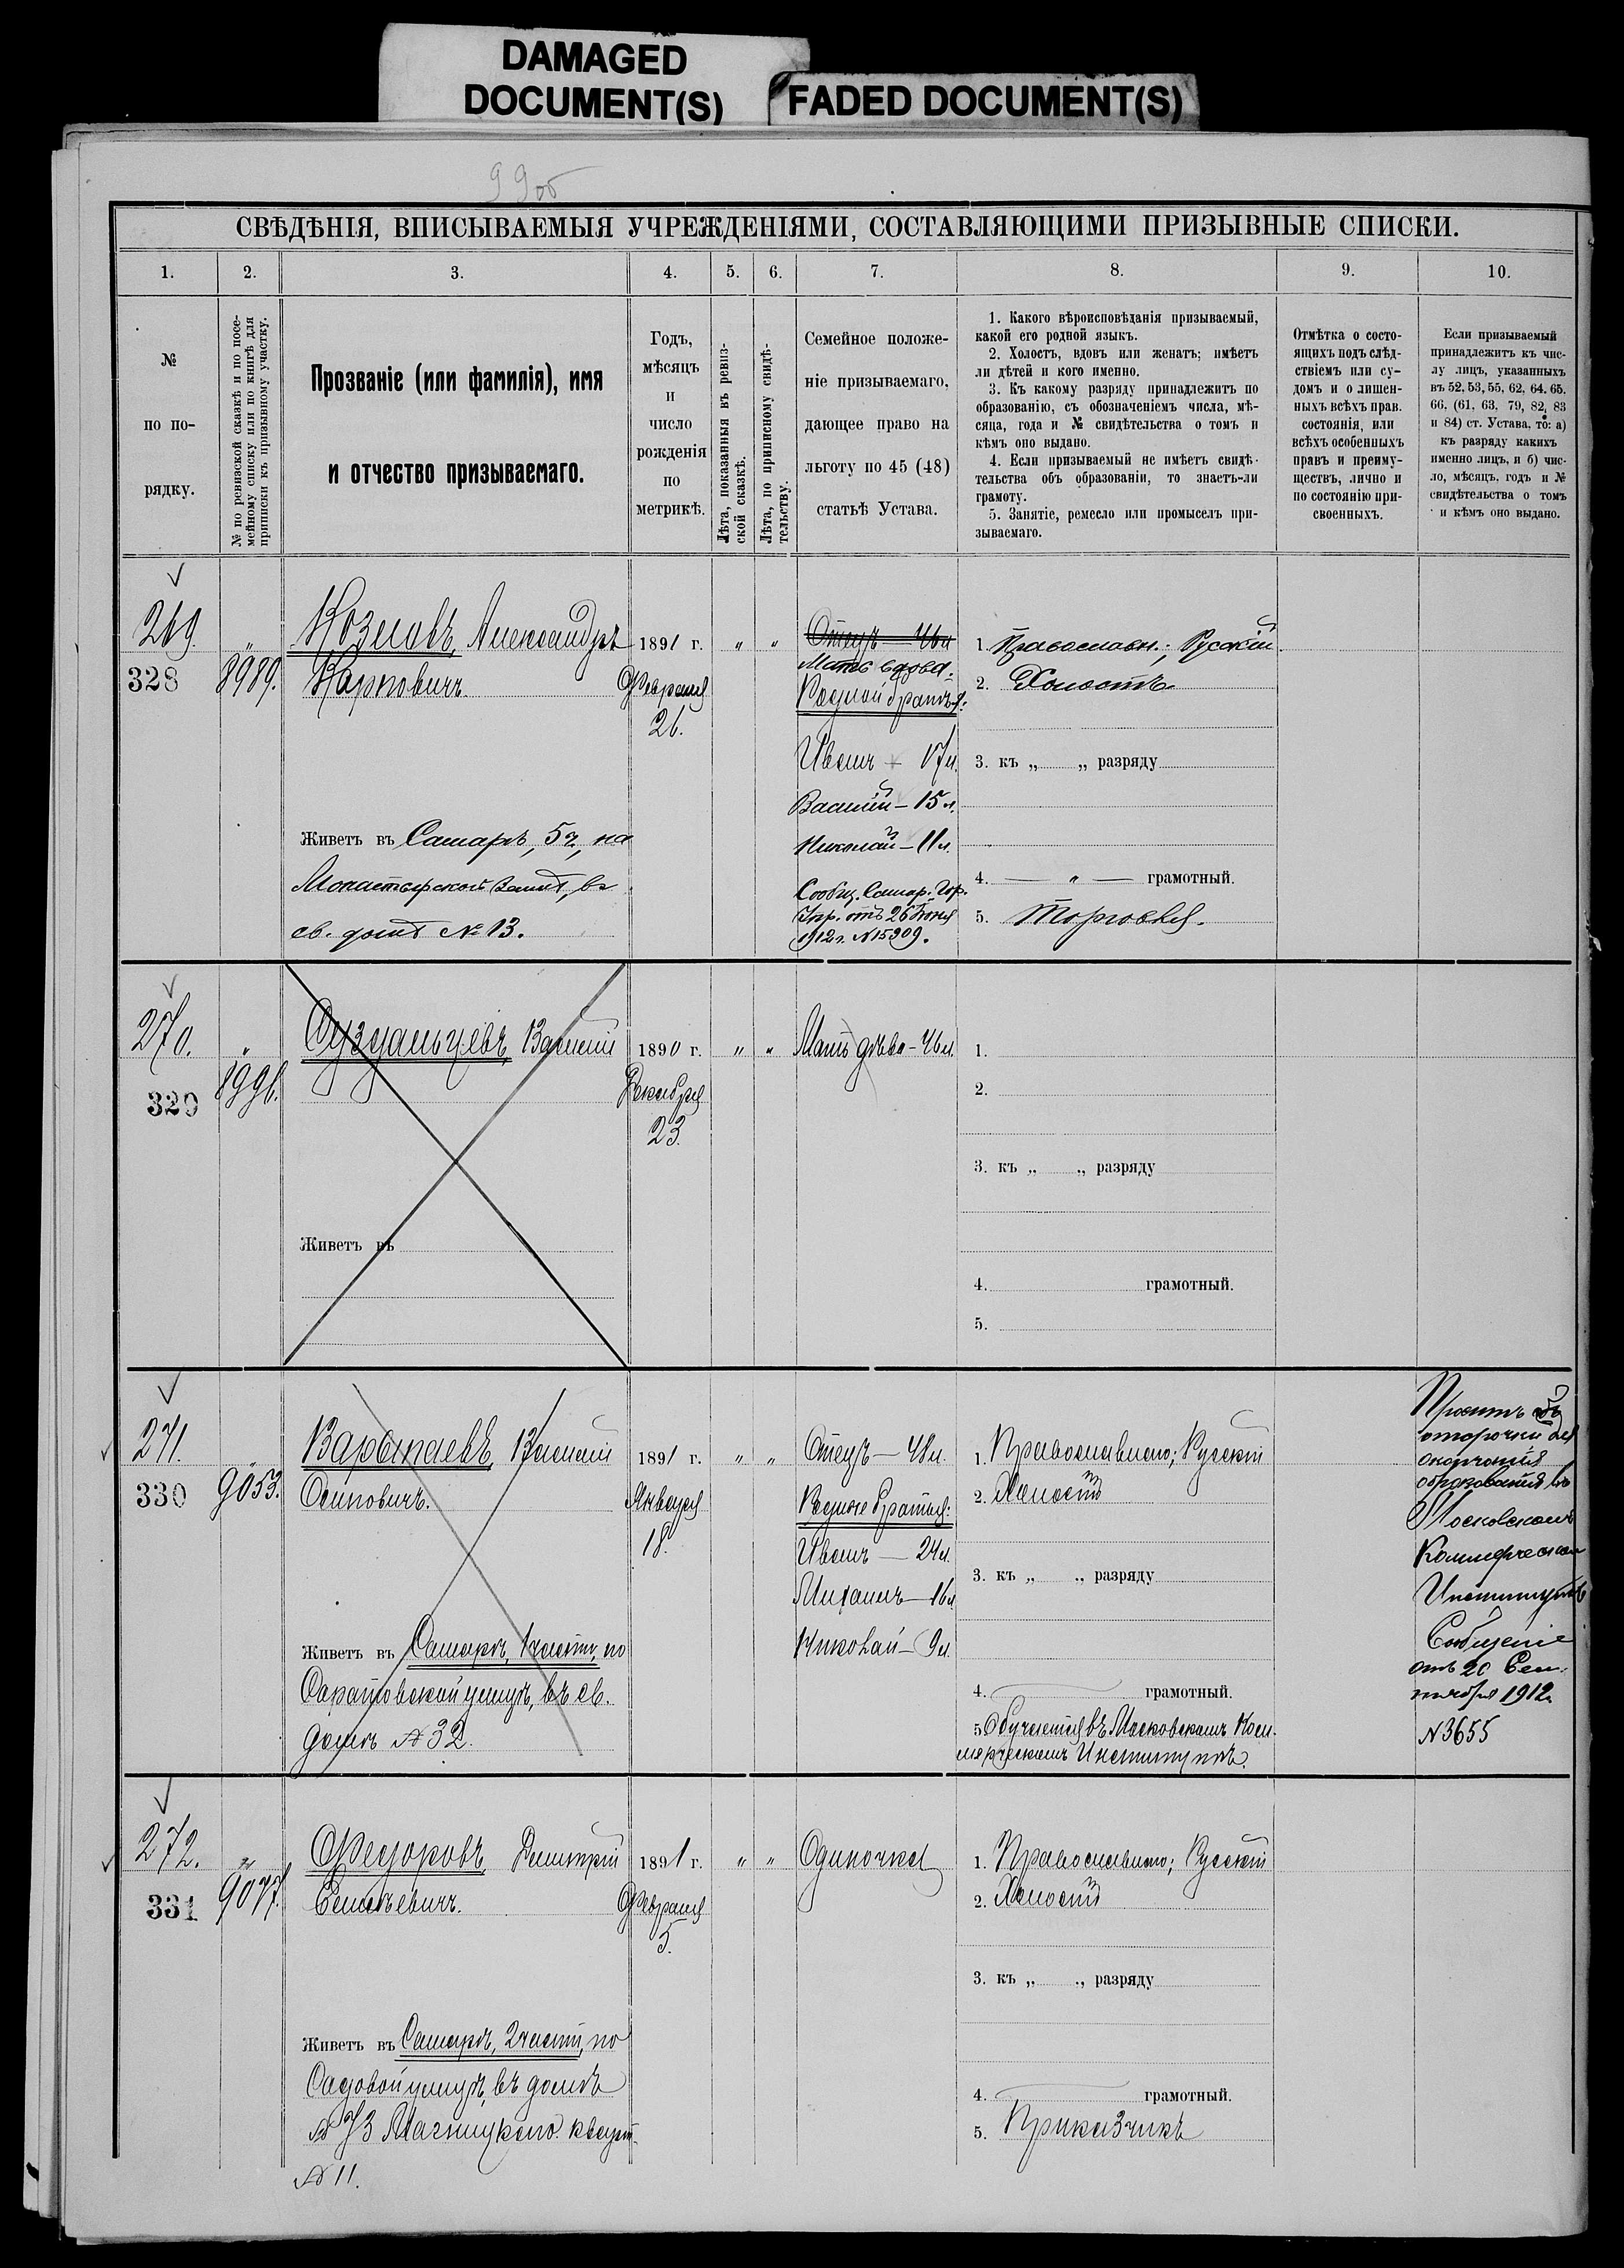 DAMAGED
DOCUMENT(S)
FADED DOCUMENT(S)
99об
СВѢДѢНІЯ, ВПИСЫВАЕМЫЯ УЧРЕЖДЕНІЯМИ, СОСТАВЛЯЮЩИМИ ПРИЗЫВНЫЕ СПИСКИ.
1.
2.
3.
4.
5.
6.
7.
8.
9.
10.
№
по по-
рядку.
№ по ревизской сказкѣ и по посе-
мейному списку или по книгѣ для
приписки къ призывному участку.
Прозваніе (или фамилія), имя
и отчество призываемаго.
Годъ,
мѣсяцъ
и
число
рожденія
по
метрикѣ.
Лѣта, показанныя въ ревиз-
ской сказкѣ.
Лѣта, по приписному свидѣ-
тельству.
Семейное положе-
ніе призываемаго,
дающее право на
льготу по 45 (48)
статьѣ Устава.
1. Какого вѣроисповѣданія призываемый,
какой его родной языкъ.
2. Холостъ, вдовъ или женатъ; имѣетъ
ли дѣтей и кого именно.
3. Къ какому разряду принадлежитъ по
образованію, съ обозначеніемъ числа, мѣ-
сяца, года и № свидѣтельства о томъ и
кѣмъ оно выдано.
4. Если призываемый не имѣетъ свидѣ-
тельства объ образованіи, то знаетъ-ли
грамоту.
5. Занятіе, ремесло или промыселъ при-
зываемаго.
Отмѣтка о состо-
ящихъ подъ слѣд-
ствіемъ или су-
домъ и о лишен-
ныхъ всѣхъ прав.
состоянія, или
всѣхъ особенныхъ
правъ и преиму-
ществъ, лично и
по состоянію при-
своенныхъ.
Если призываемый
принадлежитъ къ чис-
лу лицъ, указанныхъ
въ 52, 53, 55, 62, 64, 65,
66, (61, 63, 79, 82, 83
и 84) ст. Устава, то: а)
къ разряду какихъ
именно лицъ, и б) чис-
ло, мѣсяцъ, годъ и №
свидѣтельства о томъ
и кѣмъ оно выдано.
269.
328
"
8989.
Козловъ, Александръ
Карповичъ.
Живетъ въ Самарѣ, 5ч., на
Монастырской улицѣ, въ
св. домѣ № 13.
1891 г.
Февраля
26.
" "
Отецъ — 46л
Мать вдова.
Родной братья:
Иванъ — 17л.
Василій — 15л.
Николай — 11л.
Сообщ. Самар. Гор.
Упр. отъ 26 Іюня
1912г. №15909.
1. Православн.; Русскій
2. Холостъ
3. къ „ „ разряду
4. — " — грамотный.
5. Торговля.
270.
329
"
8996.
Суздальцевъ, Василій
Живетъ въ
1890 г.
Декабря
23.
" "
Мать дѣва - 46л.
1.
2.
3. къ „ „ разряду
4. грамотный.
5.
271.
330
"
9053.
Василій
Осиповичъ.
Живетъ въ Самарѣ, 1 части, по
Саратовской улицѣ, въ св.
домѣ № 32.
1891 г.
Января
18.
" "
Отецъ — 48л.
Родные братья:
Иванъ — 24л.
Михаилъ — 16л
Николай — 9л.
1. Православнаго; Русскій
2. Холостъ
3. къ „ „ разряду
4. грамотный.
5 Обучается въ Московскомъ Ком-
мерческомъ Институтѣ.
Проситъ объ
отсрочки для
окончанія
образованія въ
Московскомъ
Коммерческом
Институтѣ
Сообщеніе
отъ 20 Сен-
тября 1912г.
№3655
272.
331
"
9077.
Федоровъ Димитрій
Семеновичъ.
Живетъ въ Самарѣ, 2 части, по
Садовой улицѣ, въ домѣ
№ 73 кварт.
№ 11.
1891 г.
Февраля
5.
" "
Одиночка
1. Православнаго; Русскій
2. Холостъ
3. къ „ „ разряду
4. грамотный.
5. Приказчикъ